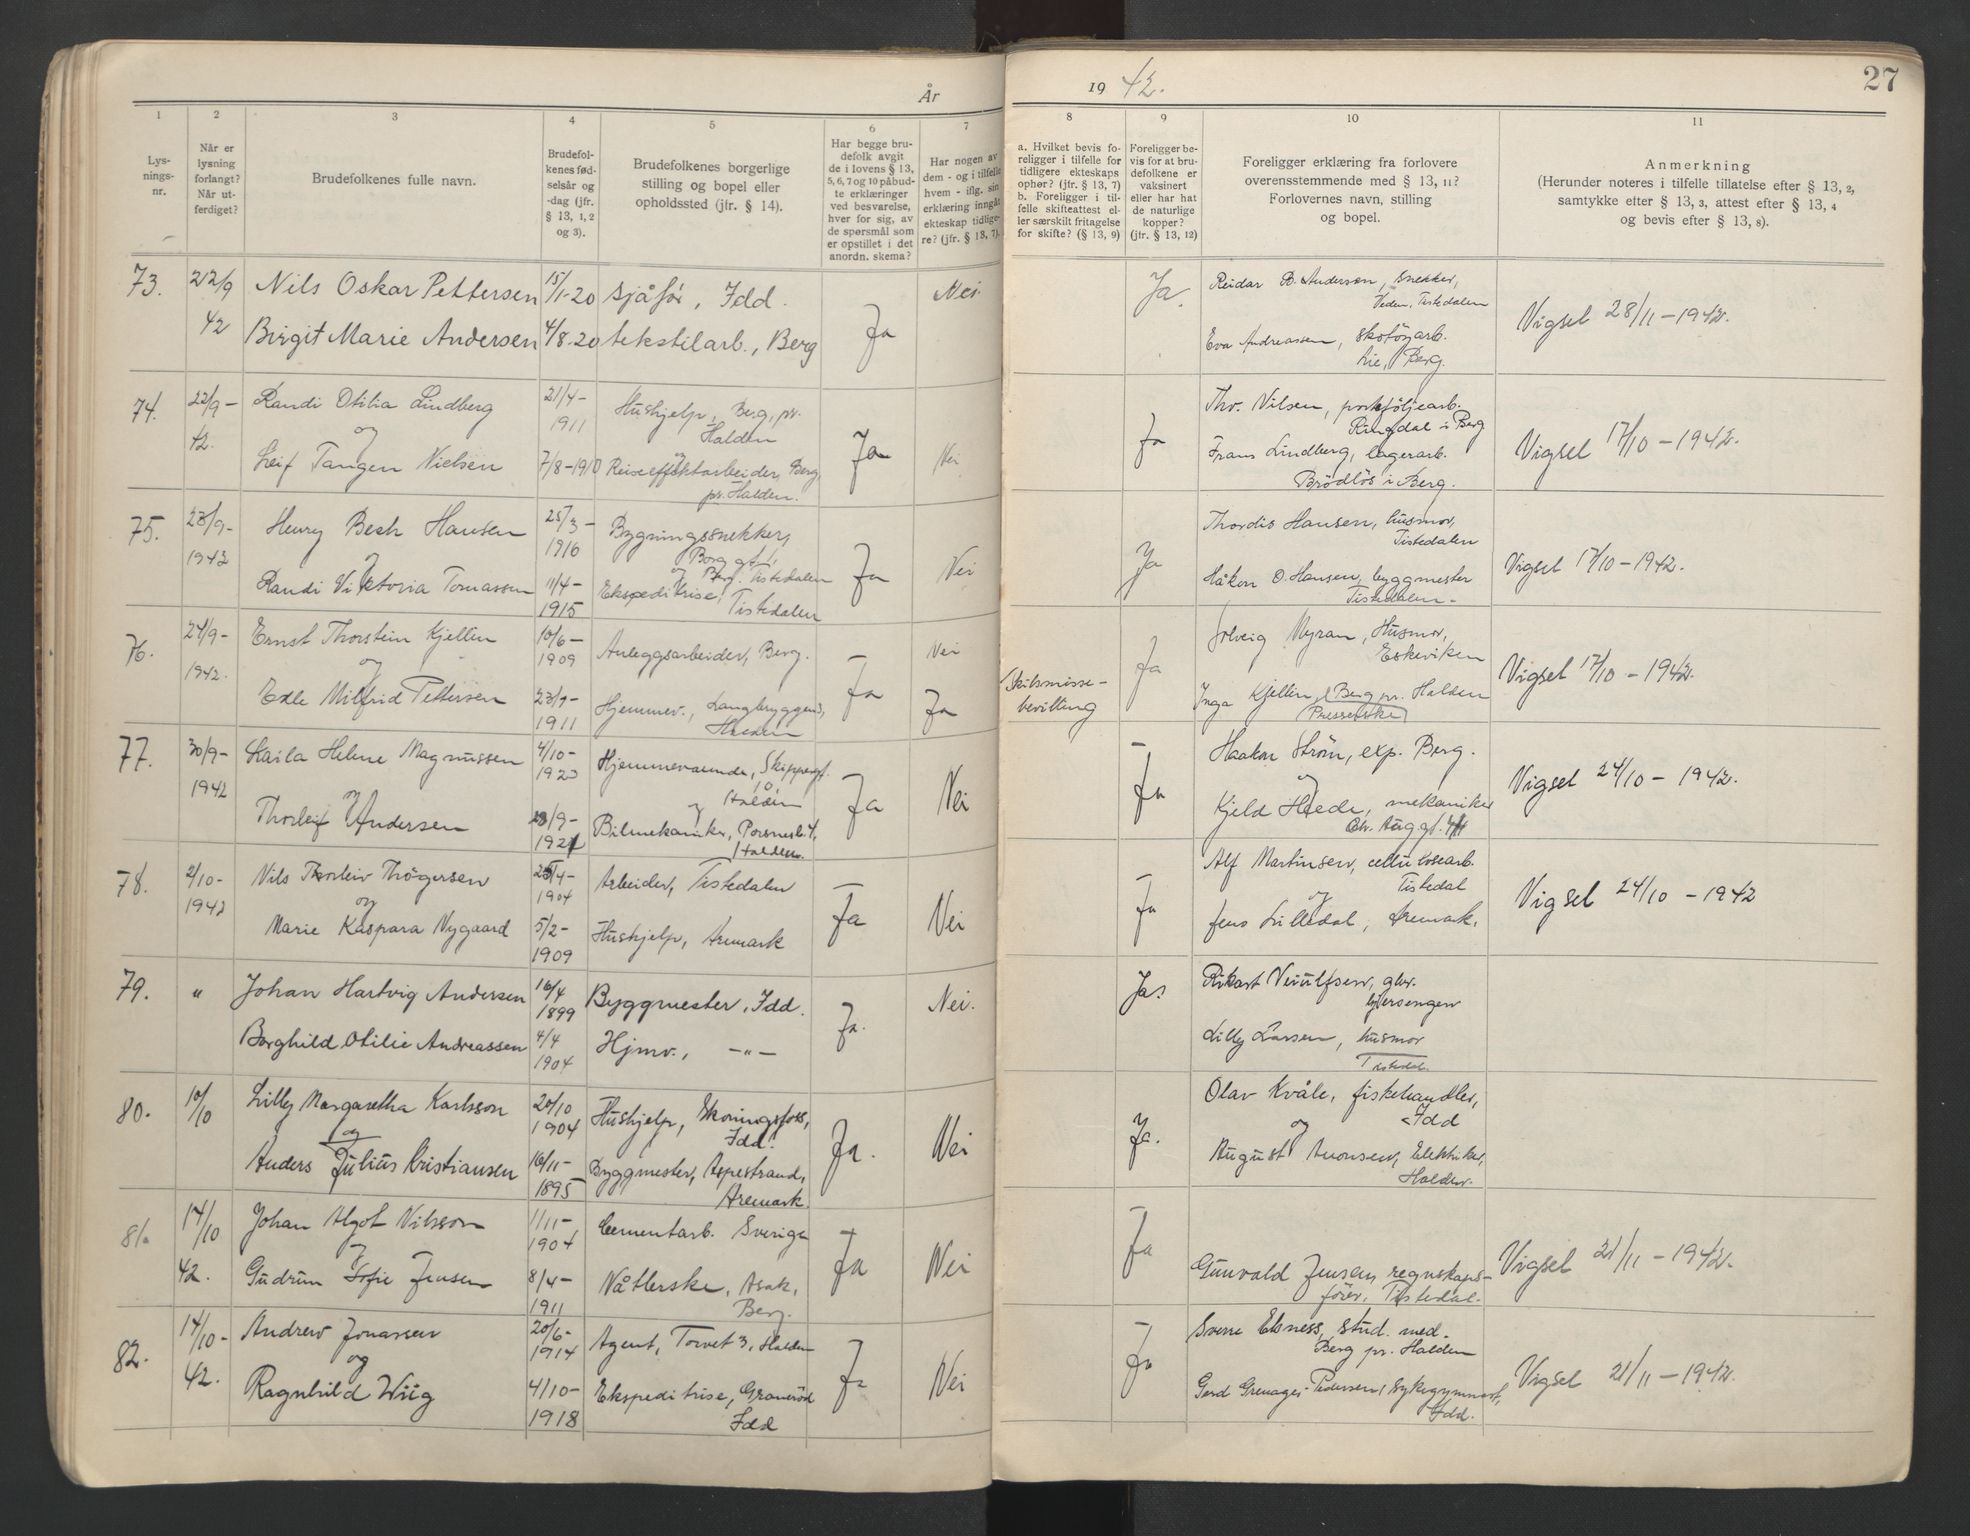 År
19 42.
27
1
2
3
4
5
6
7
8
9
10
11
Lys-
nings-
nr.
Når er
lysning
forlangt?
Når ut-
ferdiget?
Brudefolkenes fulle navn.
Brudefol-
kenes fød-
selsår og
-dag (jfr.
§ 13, 1, 2
og 3).
Brudefolkenes borgerlige
stilling og bopel eller
opholdssted (jfr. § 14).
Har begge bru-
defolk avgit
de i lovens § 13,
5, 6, 7 og 10 påbud-
te erklæringer
ved besvarelse,
hver for sig, av
de spørsmål som
er opstillet i det
anordn. skema?
Har nogen av
dem - og i tilfelle
hvem - iflg. sin
erklæring inngåt
ekteskap tidlige-
re? (jfr. § 13, 7).
a. Hvilket bevis fo-
religger i tilfelle for
tidligere ekteskaps
ophør? (jfr. § 13, 7)
b. Foreligger i til-
felle skifteattest el-
ler særskilt fritagelse
for skifte? (§ 13, 9)
Foreligger be-
vis for at bru-
defolkene er
vaksinert
eller har hat
de naturlige
kopper?
(jfr. § 13, 12)
Foreligger erklæring fra forlovere
overensstemmende med § 13, 11?
Forlovernes navn, stilling
og bopel.
Anmerkning
(Herunder noteres i tilfelle tillatelse efter § 13, 2,
samtykke efter § 13, 3, attest efter § 13, 4
og bevis efter § 13, 8).
73. 22/9 Nils Oskar Pettersen 15/1-20 sjåfør, Idd. Nei. Ja. Reidar B. Andersen, snekker,
Veden, Tistedalen
42 Birgit Marie Andersen 4/8-20 tekstilarb., Berg Ja Eva Andreassen, skotöyarb.
Lie, Berg. Vigsel 28/11-1942.
74. 22/9- Randi Otilia Lindberg 21/4-1911 Hushjelp, Berg, pr.
Halden Thv. Nilsen, portföljearb.
Ringdal i Berg
og
42. Leif Tangen Nielsen 7/8-1910 Reiseeffektarbeider, Berg,
pr. Halden. Ja Nei Ja Frans Lindberg, lagerarb.
Brödlös i Berg. Vigsel 17/10-1942.
75. 23/9- Henry Bech Hansen 25/3-1916 Bygningssnekker,
Berg, Tistedalen Thordis Hansen, husmor,
Tistedalen
og
1942 Randi Viktoria Tomassen 11/4-1915 Ekspeditrise,
Tistedalen Ja Nei Ja Håkon O. Hansen, byggmester
Tistedalen- Vigsel 17/10-1942.
76. 24/9- Ernst Thorstein Kjellin 10/6-1909 Anleggsarbeider, Berg. Nei Solveig Myran, Husmor,
Eskeviken
og
1942. Edle Milfrid Pettersen 23/9-1911 Hjemmev., Langbryggen 3,
Halden Ja Ja Skilsmisse-
bevilling Ja Inga Kjellin, Berg pr. Halden
Presserske Vigsel 17/10-1942.
77. 30/9- Laila Helene Magnussen 4/10-1923 Hjemmeværende, Skippergt.
10 Halden Haakon Ström, exp. Berg.
og
1942 Thorleif Andersen /9-1921 Bilmekaniker, Porsnesb. 4,
Halden. Ja Nei Ja Kjeld Heede, mekaniker
Chr. Aug gt. Vigsel 24/10-1942.
78. 2/10- Nils Thorleiv Thögersen 25/4-1904 Arbeider, Tistedalen Alf Martinsen, cellulosearb.
Tistedal
og
1942 Marie Kaspara Nygaard 5/2-1909 Hushjelp, Aremark Ja Nei Ja Jens Lilledal, Aremark. Vigsel 24/10-1942
79. " Johan Hartvig Andersen 16/4 1899 Byggmester, Idd. Nei. Ja. Rikart Neiulfsen, gbr.
Borghild Otilie Andreassen 4/4 1904 Hjmv., -"- Ja. Lilly Larsen, husmor
Tistedal.
80. 10/10 Lilly Margaretha Karlsson 20/10 1904 Hushjelp, Skoningsfoss,
Idd. Olav Kvåle, fiskehandler,
Idd
og
Anders Julius Kristiansen 16/11-1895 Byggmester, Aspestrand,
Aremark. Ja. Nei Ja. August Aronsen, Elektriker,
Halden.
81. 14/10 Johan Algot Nilsson 1/11-1904 Cementarb. Sverige
og
42. Gudrun Sofie Jensen 8/4-1911 Nåtlerske, Asak,
Berg. Ja Nei Ja Gunvald Jensen, regnskaps-
förer, Tistedal. Vigsel 21/11-1942.
82. 14/10- Andrew Jonassen 20/6-1914 Agent, Torvet 3, Halden Sverre Ebness, stud. med.
Berg pr. Halden
og
42. Ragnhild Wiig 4/10-1918 Ekspeditrise, Graneröd
Idd Ja Nei Ja Gerd Grenager-Pedersen, sykegymnast,
Idd. Vigsel 21/11-1942.